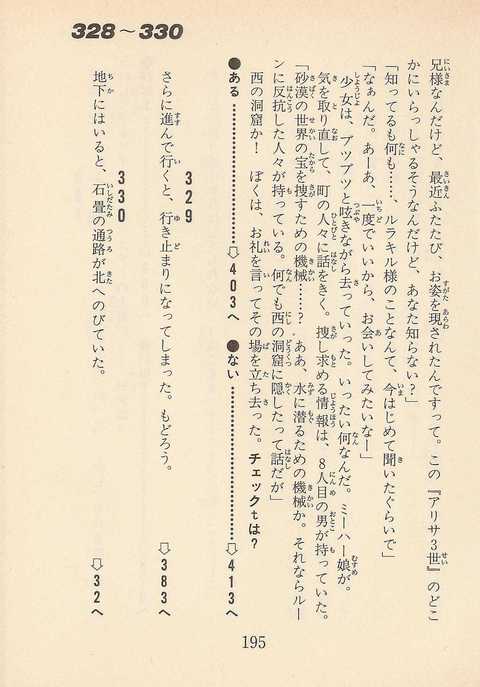 328～330
兄様なんだけど、最近ふたたび、お姿を現されたんですって。この『アリサ3世』のどこ
かにいらっしゃるそうなんだけど、あなた知らない?」
「知ってるも何も……、ルラキル様のことなんて、今はじめて聞いたぐらいで」
「なぁんだ。あーあ、一度でいいから、お会いしてみたいなー」
少女は、ブツブツと呟きながら去っていった。いったい何なんだ。ミーハー娘が。
気を取り直して、町の人々に話をきく。捜し求める情報は、8人目の男が持っていた。
「砂漠の世界の宝を捜すための機械……? ああ、水に潜るための機械か。それならルー
ンに反抗した人々が持っている。何でも西の洞窟に隠したって話だが」
西の洞窟か! ぼくは、お礼を言ってその場を立ち去った。チェックtは?
●ある…………⇨403へ ●ない…………⇨413へ
329
さらに進んで行くと、行き止まりになってしまった。もどろう。 ⇨383へ
330
地下にはいると、石畳の通路が北へのびていた。 ⇨32へ
195